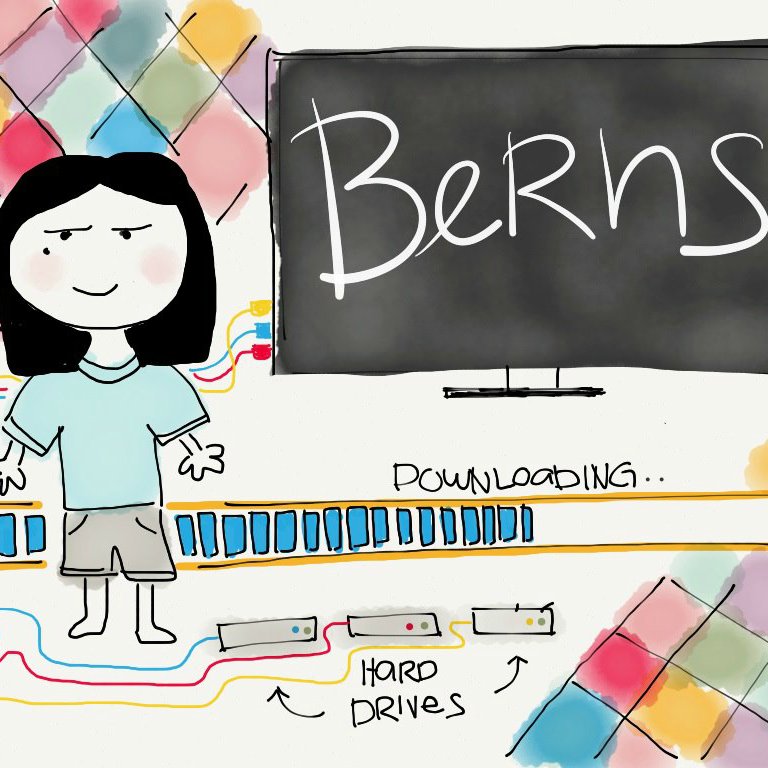 BeRns
DOWNLOADING..
HARD
DRIVES